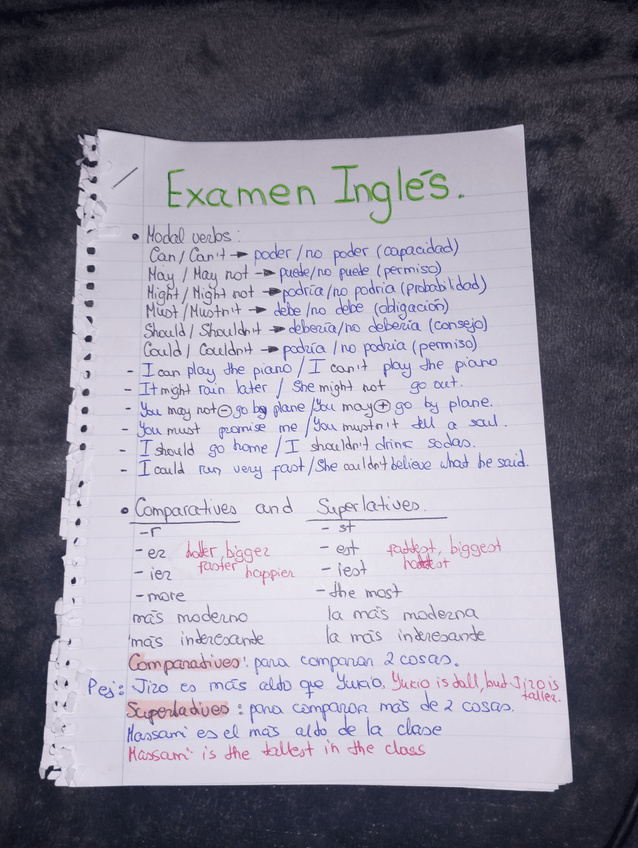 Examen Inglés.
• Modal verbs:
Can / Can't → poder / no poder (capacidad)
May / May not → puede/no puede (permiso)
Might / Might not → podría/no podría (probabilidad)
Must / Mustn't → debe / no debe (obligación)
Should / Shouldn't → debería/no debería (consejo)
Could / Couldn't → podría / no podría (permiso)
- I can play the piano / I can't play the piano
- It might rain later / She might not go out.
- You may not ⊖ go by plane / You may ⊕ go by plane.
- You must promise me / You mustn't tell a soul.
- I should go home / I shouldn't drink sodas.
- I could run very fast / She couldn't believe what he said.
• Comparatives and Superlatives.
-r - st
- er hotter, bigger - est fattest, biggest
- ier faster happier - iest hottest
- more - the most
más moderno la más moderna
más interesante la más interesante
Comparatives: para comparar 2 cosas.
Pej: Jizo es más alto que Yukio. Yukio is tall, but Jizo is taller.
Superlatives: para comparar más de 2 cosas.
Massami es el más alto de la clase
Massami is the tallest in the class